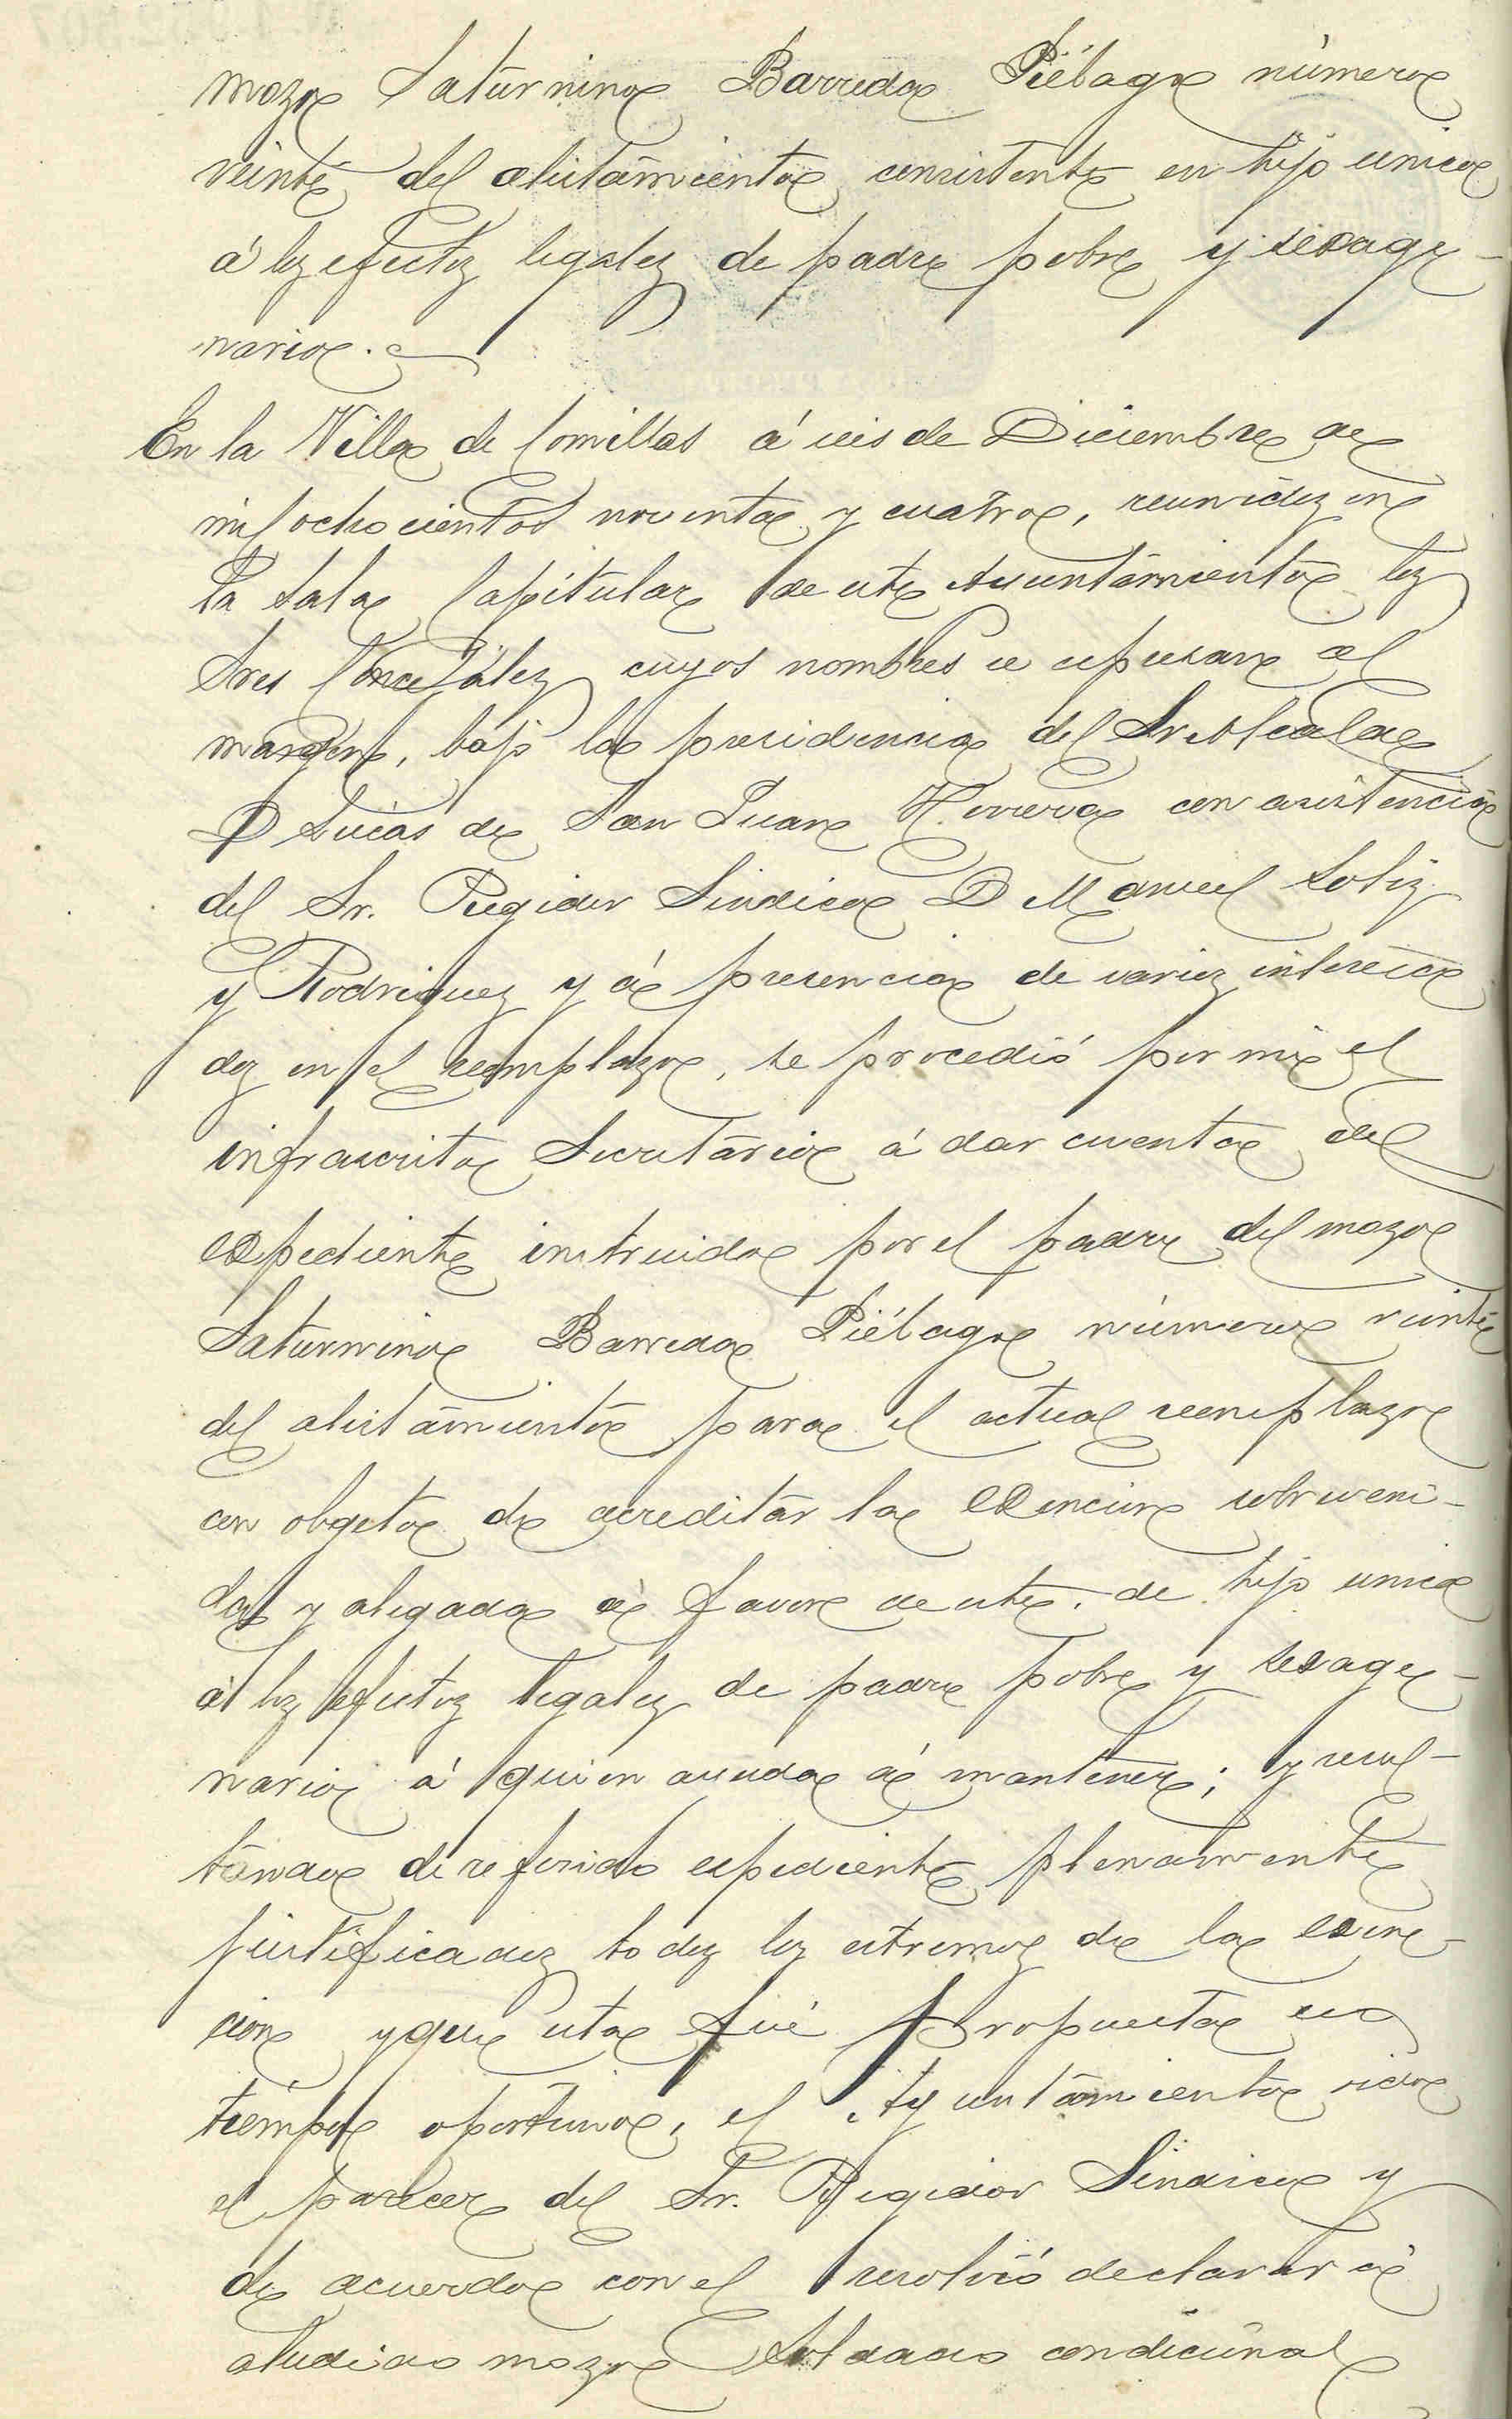 mozo Saturnino Barreda Piélago número
veinte del alistamiento consistente en hijo unico
á los efectos legales de padre pobre y sexage-
nario.
En la Villa de Comillas á seis de Diciembre de
mil ochocientos noventa y cuatro, reunidos en
la Sala Capitular de este Ayuntamiento los
Sres Concejales cuyos nombres se expresan al
margen, bajo la presidencia del Sr Alcalde
D Lucas de San Juan Herrera con asistencia
del Sr. Regidor Sindico D Manuel Solis
y Rodriguez y á presencia de varios interesa
dos en el reemplazo, se procedió por mi el
infrascrito Secretario á dar cuenta del
expediente instruido por el padre del mozo
Saturnino Barreda Piélago número veinte
del alistamiento para el actual reemplazo
con objeto de acreditar la exencion sobreveni-
da y alegada á favor de este, de hijo unico
á los efectos legales de padre pobre y sexage-
nario á quien ayuda á mantener; y resul-
tando de referido expediente plenamente
justificados todos los extremos de la exen-
cion y que esta fué propuesta en
tiempo oportuno, el Ayuntamiento oido
el parecer del Sr. Regidor Sindico y
de acuerdo con el resolvió declarar á
aludido mozo Soldado condicional